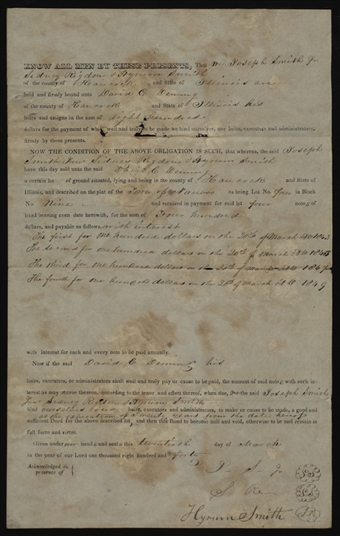 KNOW ALL MEN BY THESE PRESENTS, That We Joseph Smith Jr
Sidney Rigdon & Hyrum Smith
of the county of Hancock and State of Illinois are
held and firmly bound unto David C. Deming
of the county of Hancock and State of Illinois his
heirs and assigns in the sum of Eight Hundred
dollars for the payment of which well and truly to be made we bind ourselves, our heirs, executors and administrators,
firmly by these presents.
NOW THE CONDITION OF THE ABOVE OBLIGATION IS SUCH, that whereas, the said Joseph
Smith Junr Sidney Rigdon & Hyrum Smith
have this day sold unto the said David C. Deming
a certain lot of ground situated, lying and being in the county of Hancock and State of
Illinois, and described on the plat of the Town of Nauvoo as being Lot No. in Block
No. Nine and received in payment for said lot four notes of
hand bearing even date herewith, for the sum of Four hundred
dollars, and payable as follows with interest
The first for one hundred dollars on the 20th of March
The second for one hundred dollars on the 20th of March
The third for one hundred dollars on the 20th of March
The fourth for one hundred dollars on the 20th of March 1849
with interest for each and every note to be paid annually.
Now if the said David C. Deming his
heirs, executors, or administrators shall well and truly pay or cause to be paid, the amount of said being, with such interest
as may accrue thereon, according to the tenor and effect thereof, when due, the said Joseph Smith
Junr Sidney Rigdon & Hyrum Smith
bind ourselves our heirs, executors and administrators, to make or cause to be made, a good and
at the expiration of years from the date hereof
sufficient Deed for the above described lot, and then this Bond to become null and void, otherwise to be and remain in
full force and virtue.
Given under our hands and seals this twentieth day of March
in the year of our Lord one thousand eight hundred and forty
Acknowledged in
presence of
J. S. Jr
S. R.
Hyrum Smith